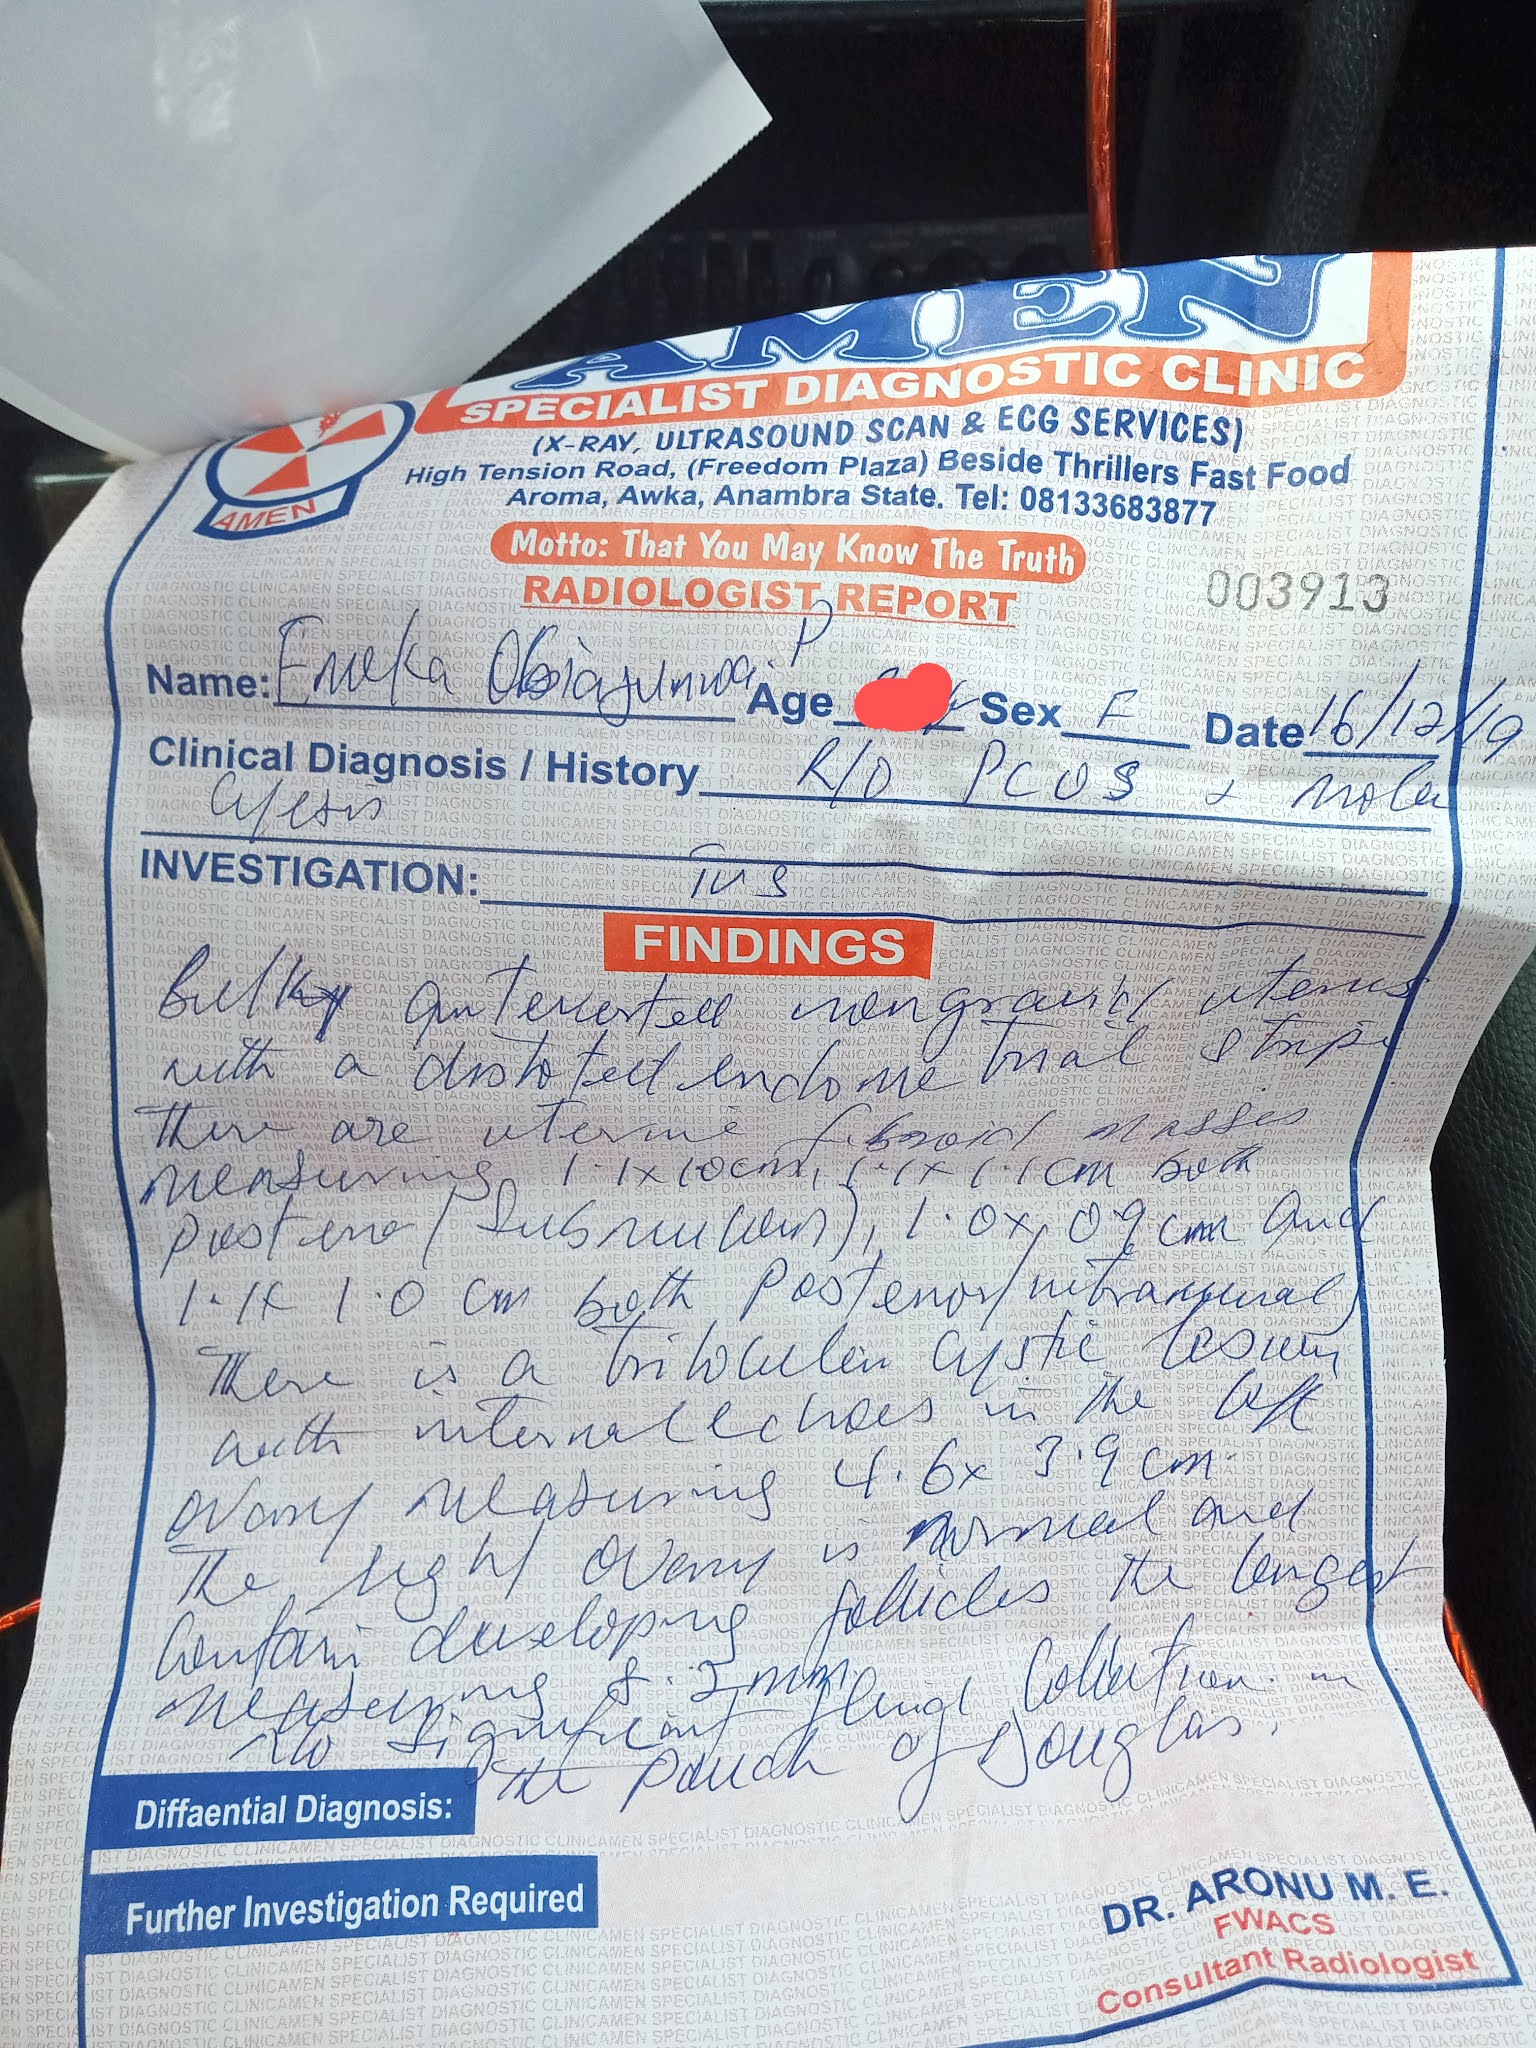 AMEN
SPECIALIST DIAGNOSTIC CLINIC
(X-RAY, ULTRASOUND SCAN & ECG SERVICES)
High Tension Road, (Freedom Plaza) Beside Thrillers Fast Food
Aroma, Awka, Anambra State. Tel: 08133683877
AMEN
Motto: That You May Know The Truth
RADIOLOGIST REPORT
003913
Name: Emeka P Age Sex F Date 16/12/19
Clinical Diagnosis / History R/O PCOS & molar
Cyesis
INVESTIGATION: TVS
FINDINGS
Bulky anteverted nongravid uterus
with a distorted endometrial stripe
There are uterine fibroid masses
measuring 1.1x1.0cm, 1.1x1.1cm both
posterior/submucous), 1.0x0.9cm and
1.1x1.0cm both posterior/intramural)
There is a trilocular cystic lesion
with internal echoes in the left
ovary measuring 4.6x3.9cm.
The right ovary is normal and
contain developing follicles the largest
measuring 8.2mm
No significant fluid collection in
the pouch of Douglas.
Diffaential Diagnosis:
Further Investigation Required
DR. ARONU M. E.
FWACS
Consultant Radiologist